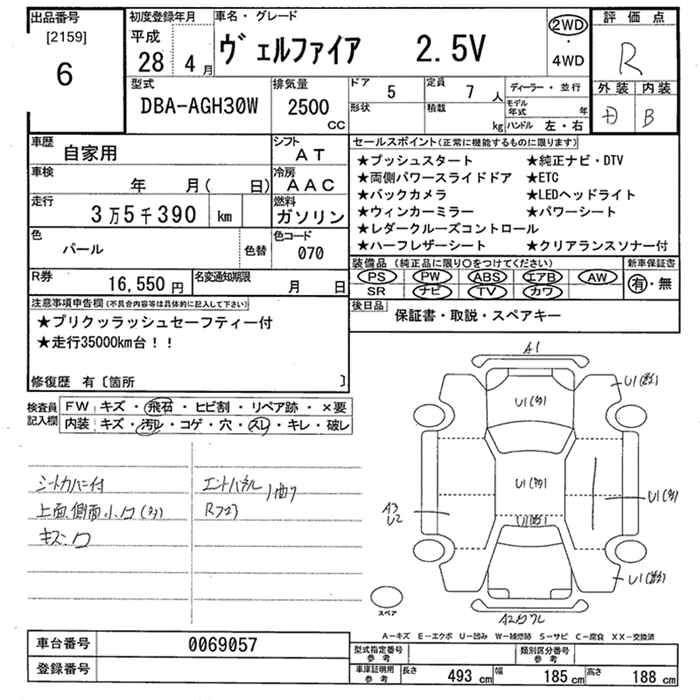 出品番号
[2159]
6
初度登録年月
平成
28 4月
車名・グレード
ヴェルファイア 2.5V
2WD
・
4WD
評価点
R
外装 内装
B
型式
DBA-AGH30W
排気量
2500
CC
ドア 5
定員 7 人
形状
積載 kg
ディーラー・並行
モデル年式 年
ハンドル 左・右
車歴
自家用
シフト
AT
車検
年 月( 日)
冷房
AAC
走行
3万5千390 km
燃料
ガソリン
色
パール
色替
色コード
070
R券
16,550 円
名変通知期限
月 日
セールスポイント(正常に機能するものに限ります)
★プッシュスタート ★純正ナビ・DTV
★両側パワースライドドア ★ETC
★バックカメラ ★LEDヘッドライト
★ウィンカーミラー ★パワーシート
★レダークルーズコントロール
★ハーフレザーシート ★クリアランスソナー付
装備品(純正品に限り○をつけてください)
PS PW ABS エアB AW
SR ナビ TV カワ
新車保証書
有・無
後日品
保証書・取説・スペアキー
注意事項申告欄(不具合内容等は具体的に記入して下さい)
★プリクッラッシュセーフティー付
★走行35000km台!!
修復歴 有〔箇所 〕
検査員
記入欄
FW キズ・飛石・ヒビ割・リペア跡・×要
内装 キズ・汚レ・コゲ・穴・スレ・キレ・破レ
シートカバー付
上面、側面 小凹(多)
キズ凹
エントパネル 曲り
Rフロ
A1
U1(多)
U1(多)
U1(多)
U1(多)
U1(多)
A3
U2
スペア
A-キズ E-エクボ U-凹み W-補修跡 S-サビ C-腐食 XX-交換済
車台番号
0069057
登録番号
型式指定番号
参考
類別区分番号
参考
車庫証明用
参考
長さ 493 cm
幅 185 cm
高さ 188 cm